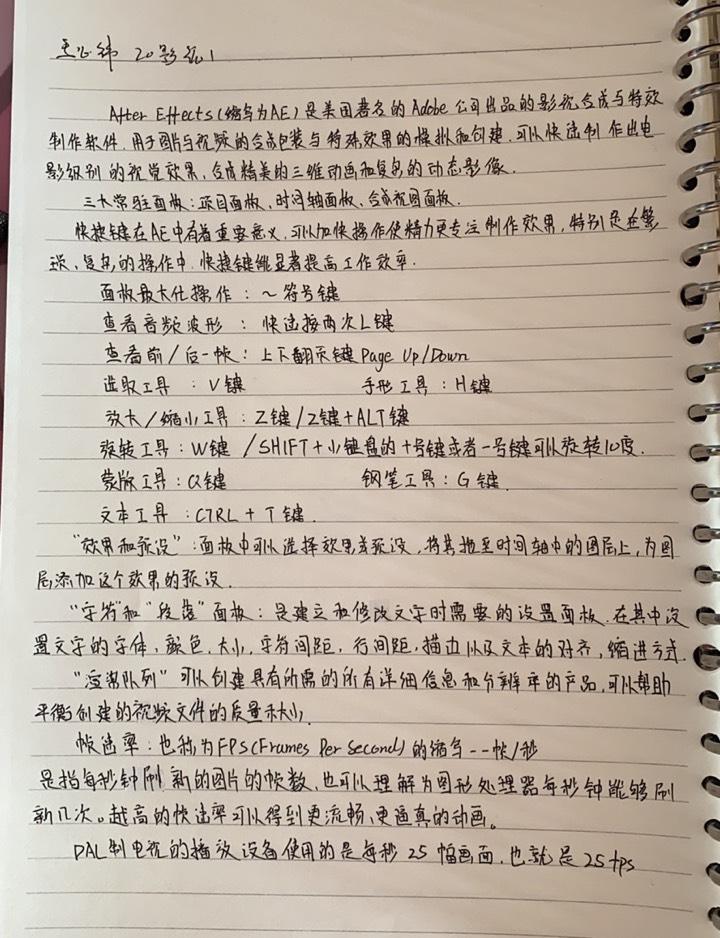 20影视1
After Effects(缩写为AE)是美国著名的Adobe公司出品的影视合成与特效
制作软件.用于图片与视频的合成包装与特殊效果的模拟和创建.可以快速制作出电
影级别的视觉效果,合成精美的三维动画和复杂的动态影像.
三大常驻面板:项目面板,时间轴面板,合成视图面板.
快捷键在AE中有着重要意义,可以加快操作使精力更专注制作效果,特别是在繁
琐、复杂的操作中.快捷键能显著提高工作效率.
面板最大化操作:~符号键
查看音频波形:快速按两次L键
查看前/后一帧:上下翻页键Page Up/Down
选取工具:V键 手形工具:H键
放大/缩小工具:Z键/Z键+ALT键
旋转工具:W键/SHIFT+小键盘的+号键或者-号键可以旋转10度.
蒙版工具:Q键 钢笔工具:G键.
文本工具:CTRL+T键.
"效果和预设":面板中可以选择效果或预设,将其拖至时间轴中的图层上,为图
层添加这个效果的预设.
"字符"和"段落"面板:是建立和修改文字时需要的设置面板.在其中设
置文字的字体,颜色.大小,字符间距,行间距,描边以及文本的对齐,缩进方式.
"渲染队列"可以创建具有所需的所有详细信息和分辨率的产品,可以帮助
平衡创建的视频文件的质量和大小.
帧速率:也称为FPS(Frames Per Second)的缩写--帧/秒
是指每秒钟刷新的图片的帧数,也可以理解为图形处理器每秒钟能够刷
新几次。越高的帧速率可以得到更流畅、更逼真的动画。
PAL制电视的播放设备使用的是每秒25幅画面,也就是25fps